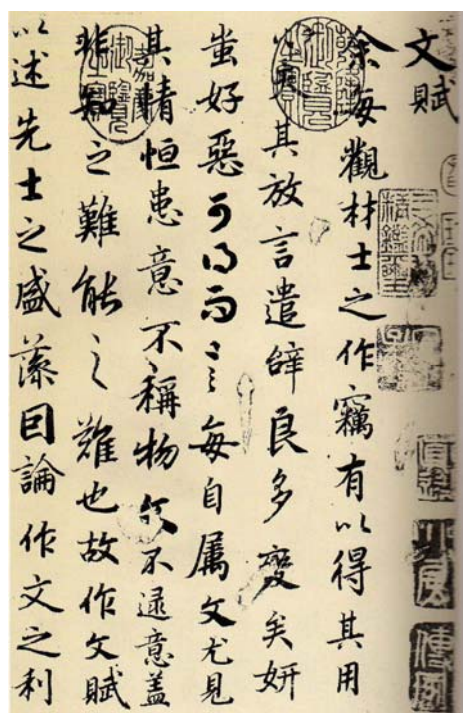 文賦
余每觀材士之作竊有以得其用
心夫其放言遣辭良多變矣妍
蚩好惡可得而言每自属文尤見
其情恒患意不稱物文不逮意盖
非知之難能之難也故作文賦
以述先士之盛藻因論作文之利